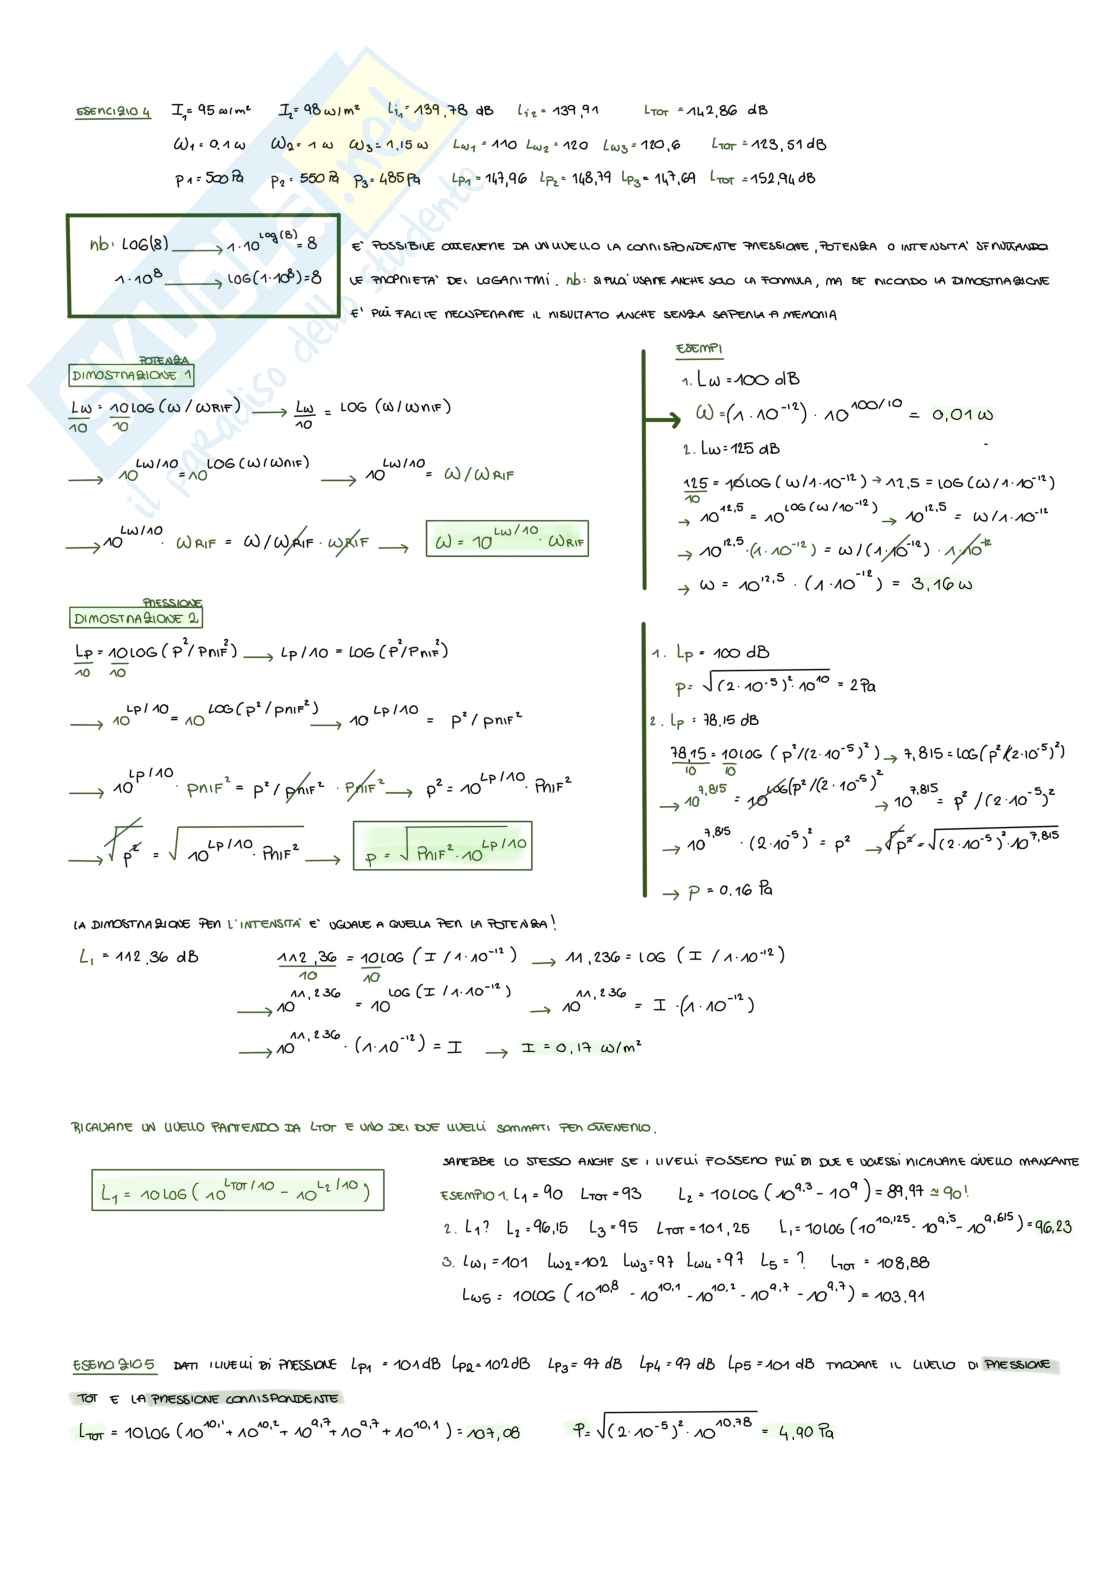 ESERCIZIO 4 I₁= 95 W/m² I₂= 98 W/m² Li₁= 139,78 dB Li₂= 139,91 LTOT = 142,86 dB
W₁= 0.1 W W₂= 1 W W₃= 1,15 W LW₁= 110 LW₂= 120 LW₃= 120,6 LTOT = 123,51 dB
P1= 500 Pa P₂= 550 Pa P₃= 485 Pa LP₁= 147,96 LP₂= 148,79 LP₃= 147,69 LTOT = 152,94 dB
nb: LOG(8) → 1·10^LOG(8) = 8
1·10⁸ → LOG(1·10⁸)=8
E' POSSIBILE OTTENERE DA UN LIVELLO LA CORRISPONDENTE PRESSIONE, POTENZA O INTENSITA' SFRUTTANDO
LE PROPRIETA' DEI LOGARITMI. nb: SI PUO' USARE ANCHE SOLO LA FORMULA, MA SE RICORDO LA DIMOSTRAZIONE
E' PIÙ FACILE RECUPERARE IL RISULTATO ANCHE SENZA SAPERLA A MEMORIA
SKUOLA.net
il paradiso dello studente
POTENZA
DIMOSTRAZIONE 1
LW/10 = 10LOG(W/WRIF)/10 → LW/10 = LOG (W/WRIF)
→ 10^LW/10 = 10^LOG(W/WRIF) → 10^LW/10 = W/WRIF
→ 10^LW/10 · WRIF = W/WRIF · WRIF → W = 10^LW/10 · WRIF
ESEMPI
1. LW = 100 dB
W = (1·10⁻¹²) · 10^100/10 = 0,01 W
2. LW = 125 dB
125/10 = 10LOG (W/1·10⁻¹²) → 12,5 = LOG (W/1·10⁻¹²)
→ 10^12,5 = 10^LOG(W/10⁻¹²) → 10^12,5 = W/1·10⁻¹²
→ 10^12,5 · (1·10⁻¹²) = W/(1·10⁻¹²) · 1·10⁻¹²
→ W = 10^12,5 · (1·10⁻¹²) = 3,16 W
PRESSIONE
DIMOSTRAZIONE 2
LP/10 = 10LOG(P²/PRIF²)/10 → LP/10 = LOG(P²/PRIF²)
→ 10^LP/10 = 10^LOG(P²/PRIF²) → 10^LP/10 = P²/PRIF²
→ 10^LP/10 · PRIF² = P²/PRIF² · PRIF² → P² = 10^LP/10 · PRIF²
→ √P² = √10^LP/10 · PRIF² → P = √PRIF² · 10^LP/10
1. LP = 100 dB
P= √(2·10⁻⁵)² · 10¹⁰ = 2 Pa
2. LP = 78,15 dB
78,15/10 = 10LOG (P²/(2·10⁻⁵)²)/10 → 7,815 = LOG(P²/(2·10⁻⁵)²)
→ 10^7,815 = 10^LOG(P²/(2·10⁻⁵)² → 10^7,815 = P²/(2·10⁻⁵)²
→ 10^7,815 · (2·10⁻⁵)² = P² → √P² = √(2·10⁻⁵)² · 10^7,815
→ P = 0.16 Pa
LA DIMOSTRAZIONE PER L'INTENSITA' E' UGUALE A QUELLA PER LA POTENZA!
LI = 112.36 dB 112,36/10 = 10LOG (I/1·10⁻¹²)/10 → 11,236 = LOG (I/1·10⁻¹²)
→ 10^11,236 = 10^LOG(I/1·10⁻¹²) → 10^11,236 = I·(1·10⁻¹²)
→ 10^11,236 · (1·10⁻¹²) = I → I = 0,17 W/m²
RICAVARE UN LIVELLO PARTENDO DA LTOT E UNO DEI DUE LIVELLI SOMMATI PER OTTENERLO.
L₁ = 10LOG (10^LTOT/10 - 10^L2/10)
SAREBBE LO STESSO ANCHE SE I LIVELLI FOSSERO PIÙ DI DUE E VOLESSI RICAVARE QUELLO MANCANTE
ESEMPIO 1. L₁ = 90 LTOT = 93 L₂ = 10LOG (10^9.3 - 10⁹) = 89,97 ≃ 90!
2. L₁? L₂ = 96,15 L₃ = 95 LTOT = 101,25 L₁ = 10LOG (10^10,125 - 10^9,5 - 10^9,615) = 96,23
3. LW₁ = 101 LW₂ = 102 LW₃ = 97 LW₄ = 97 L5 = ? LTOT = 108,88
LW5 = 10LOG (10^10,8 - 10^10,1 - 10^10,2 - 10^9,7 - 10^9,7) = 103,91
ESERCIZIO 5 DATI I LIVELLI DI PRESSIONE LP1 = 101 dB LP2 = 102 dB LP3 = 97 dB LP4 = 97 dB LP5 = 101 dB TROVARE IL LIVELLO DI PRESSIONE
TOT E LA PRESSIONE CORRISPONDENTE
LTOT = 10LOG (10^10,1 + 10^10,2 + 10^9,7 + 10^9,7 + 10^10,1) = 107,08 P= √(2·10⁻⁵)² · 10^10,78 = 4,90 Pa